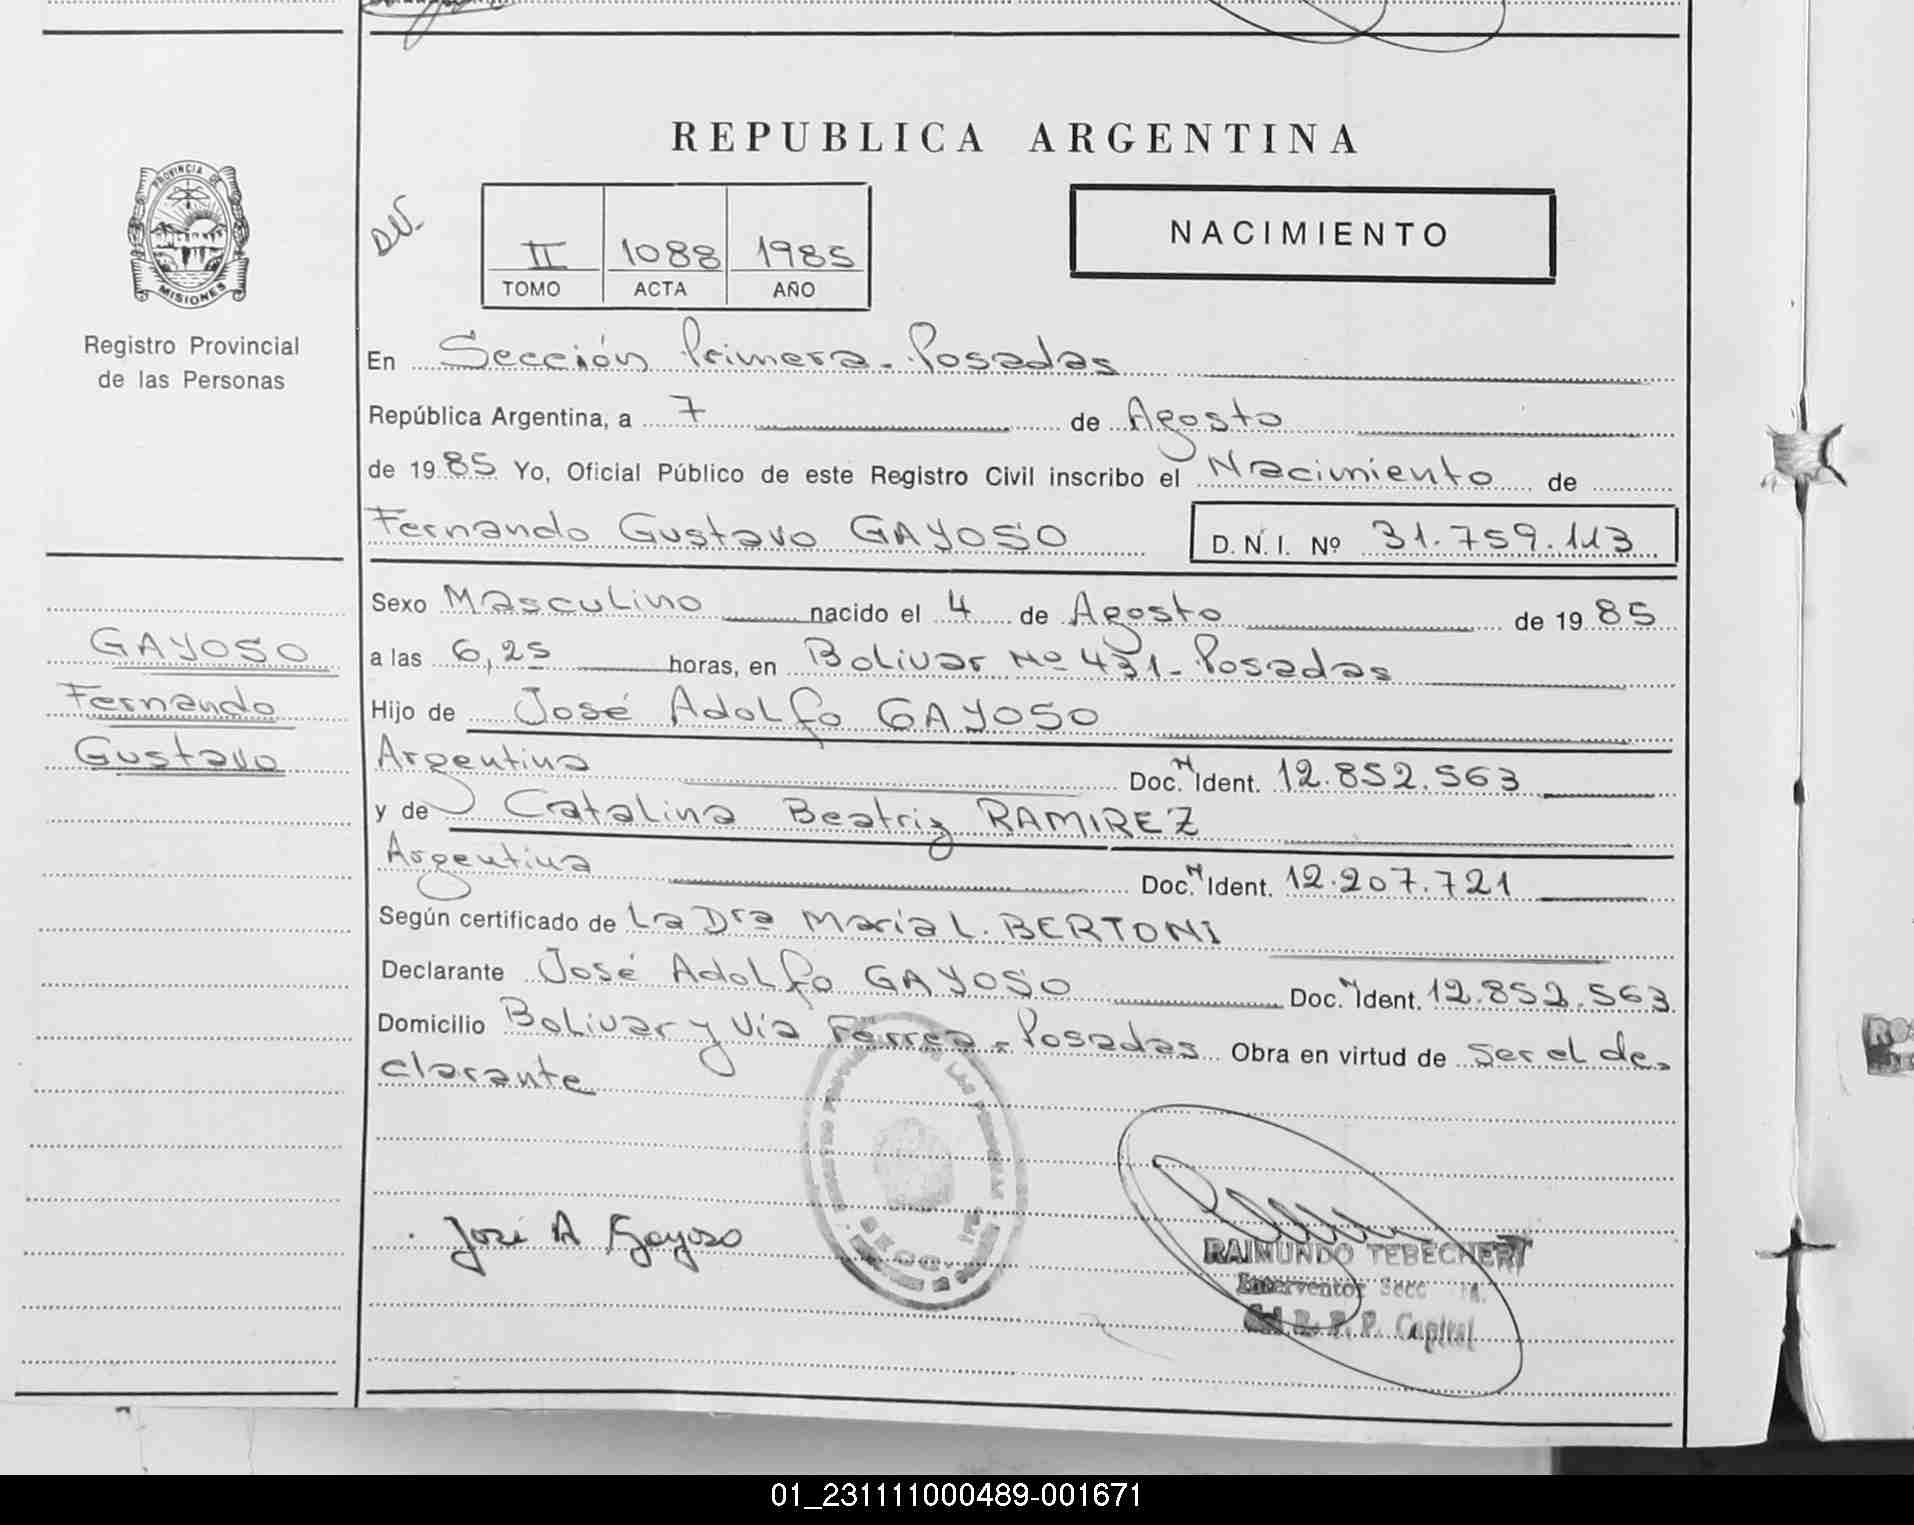 REPUBLICA ARGENTINA
PROVINCIA DE
MISIONES
Registro Provincial
de las Personas
II 1088 1985
TOMO ACTA AÑO
NACIMIENTO
En Sección Primera - Posadas
República Argentina, a 7 de Agosto
de 1985 Yo, Oficial Público de este Registro Civil inscribo el Nacimiento de
Fernando Gustavo GAYOSO D. N. I. Nº 31.759.113
Sexo Masculino nacido el 4 de Agosto de 1985
a las 6,25 horas, en Bolivar Nº 431 - Posadas
Hijo de José Adolfo GAYOSO
Argentina Doc. N Ident. 12.852.563
y de Catalina Beatriz RAMIREZ
Argentina Doc. N Ident. 12.207.721
Según certificado de La Dra María L. BERTONI
Declarante José Adolfo GAYOSO Doc. N Ident. 12.852.563
Domicilio Bolivar y Vía Ferrea - Posadas Obra en virtud de ser el de-
clarante
GAYOSO
Fernando
Gustavo
José A Gayoso
RAIMUNDO TEBECHERT
Interventor Secc
R. P. P. Capital
01_231111000489-001671